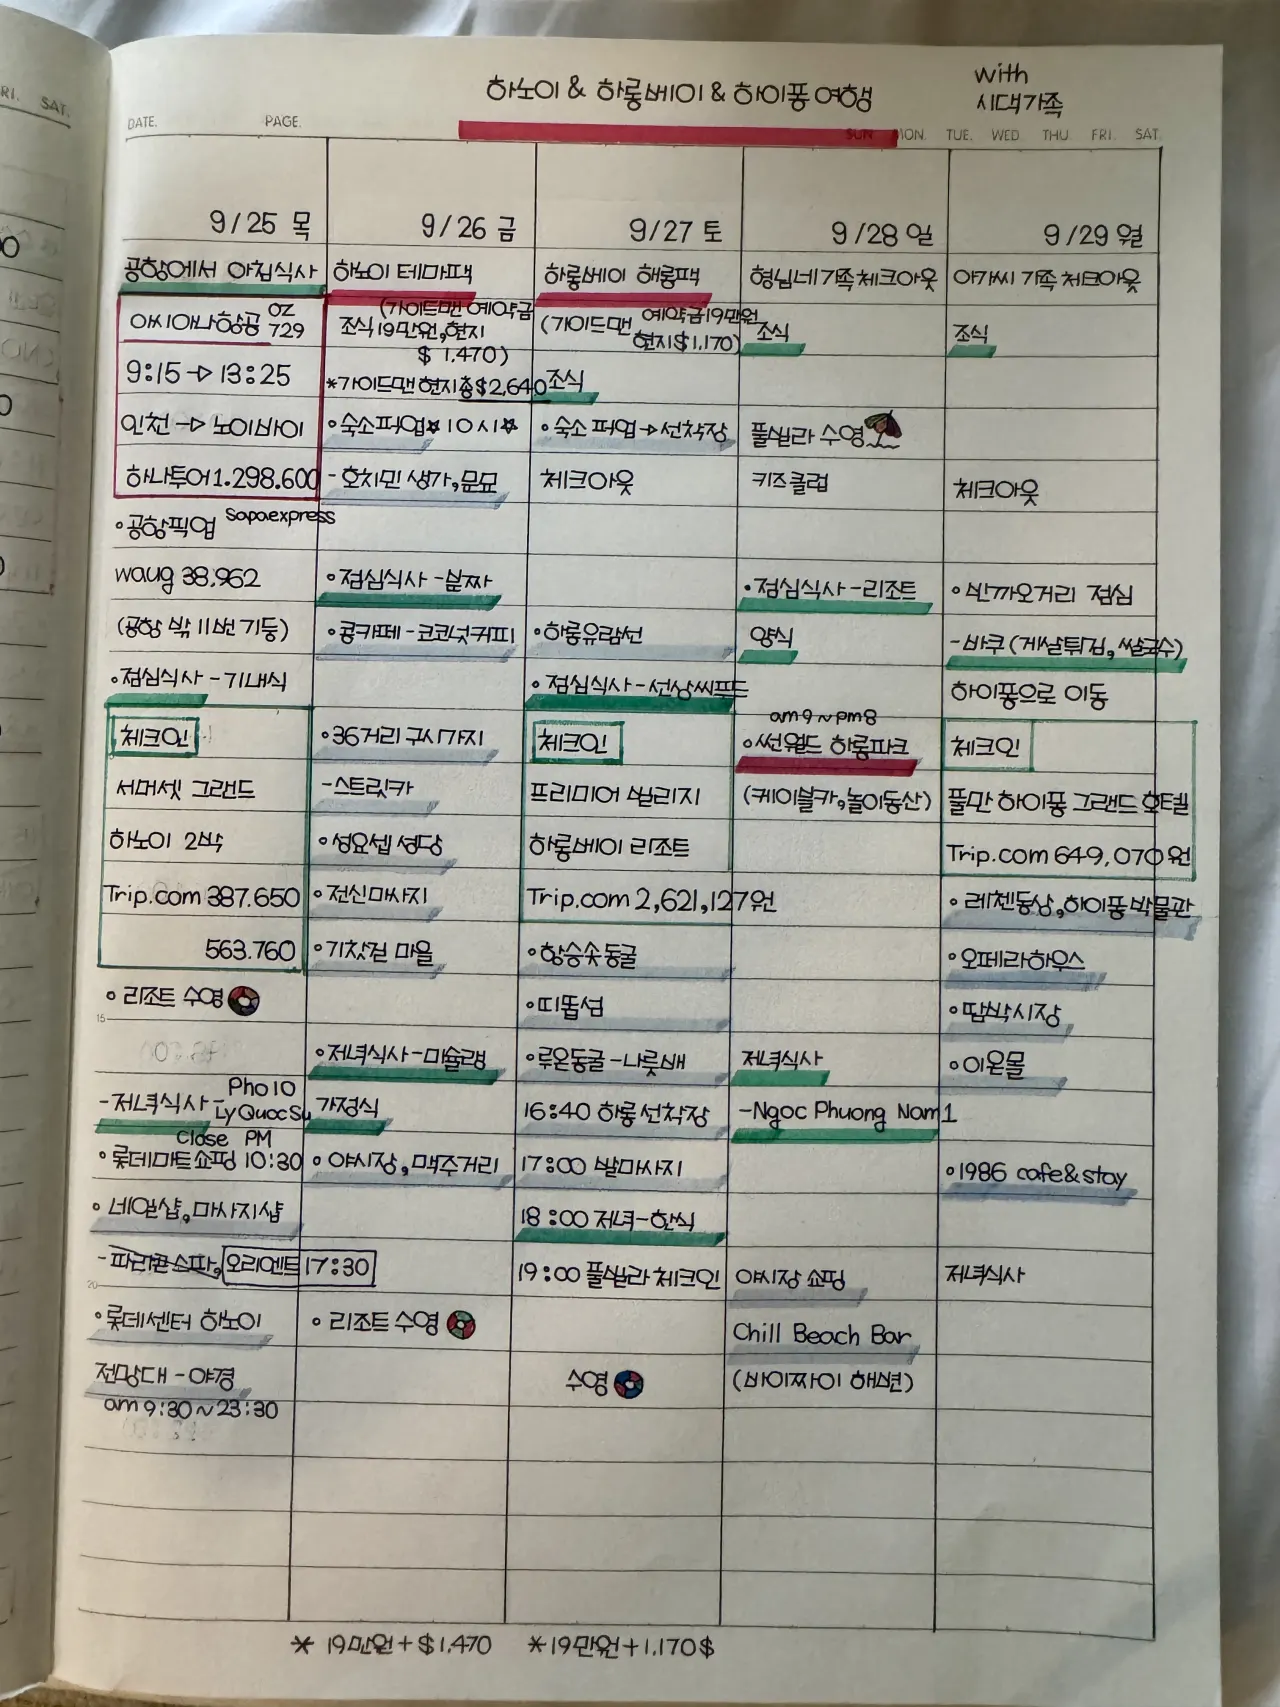 RI. SAT.
하노이 & 하롱베이 & 하이퐁 여행
with
시댁가족
DATE. PAGE.
SUN. MON. TUE. WED. THU. FRI. SAT.
9/25 목
공항에서 아침식사
아시아나항공 OZ 729
9:15 → 13:25
인천 → 노이바이
하나투어 1.298.600
•공항픽업 Sapaexpress
waug 38,962
(공항 밖 11번 기둥)
•점심식사 - 기내식
체크인
서머셋 그랜드
하노이 2박
Trip.com 387.650
563.760
• 리조트 수영
15
- 저녁식사 - Pho 10
Ly Quoc Su
Close PM
• 롯데마트 쇼핑 10:30
• 네일샵, 마사지샵
- 파라곤 스파, 오리엔트 17:30
20
• 롯데센터 하노이
전망대 - 야경
am 9:30 ~ 23:30
9/26 금
하노이 테마팩
(가이드맨 예약금
조식 19만원, 현지
$ 1.470)
*가이드맨 현지총 $2,640
• 숙소픽업 ☆10시☆
- 호치민 생가, 문묘
• 점심식사 - 분짜
• 콩카페 - 코코넛커피
• 36거리 구시가지
- 스트릿카
• 성요셉 성당
• 전신마사지
• 기찻길 마을
• 저녁식사 - 미슐랭
가정식
• 야시장, 맥주거리
• 리조트 수영
9/27 토
하롱베이 해룡팩
(가이드맨 예약금19만원
현지$1,170)
조식
• 숙소 픽업 → 선착장
체크아웃
• 하롱유람선
• 점심식사 - 선상씨푸드
체크인
프리미어 빌리지
하롱베이 리조트
Trip.com 2,621,127원
• 항승솟동굴
• 띠톱섬
• 루온동굴 - 나룻배
16:40 하롱 선착장
17:00 발마사지
18:00 저녁 - 한식
19:00 풀빌라 체크인
수영
9/28 일
형님네 가족 체크아웃
조식
풀빌라 수영
키즈클럽
• 점심식사 - 리조트
양식
am 9 ~ pm 8
• 썬월드 하롱파크
(케이블카, 놀이동산)
저녁식사
- Ngoc Phuong Nam 1
야시장 쇼핑
Chill Beach Bar
(바이짜이 해변)
9/29 월
아가씨 가족 체크아웃
조식
체크아웃
• 반까오거리 점심
- 바쿠 (게살튀김, 쌀국수)
하이퐁으로 이동
체크인
풀만 하이퐁 그랜드 호텔
Trip.com 649,070원
• 레첸동상, 하이퐁 박물관
• 오페라하우스
• 땀박시장
• 이온몰
• 1986 cafe & stay
저녁식사
* 19만원 + $1,470 * 19만원 + 1.170$